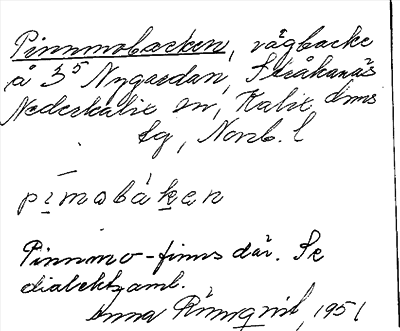 Pinnmobacken, vägbacke
å 3⁵ Nygården, Stråkanäs
Nederkalix sn, Kalix dms
tg, Norrb. l
pi̱mobàḵen
Pinnmo-finns där. Se
dialektsaml.
Anna Rönnqvist, 1951